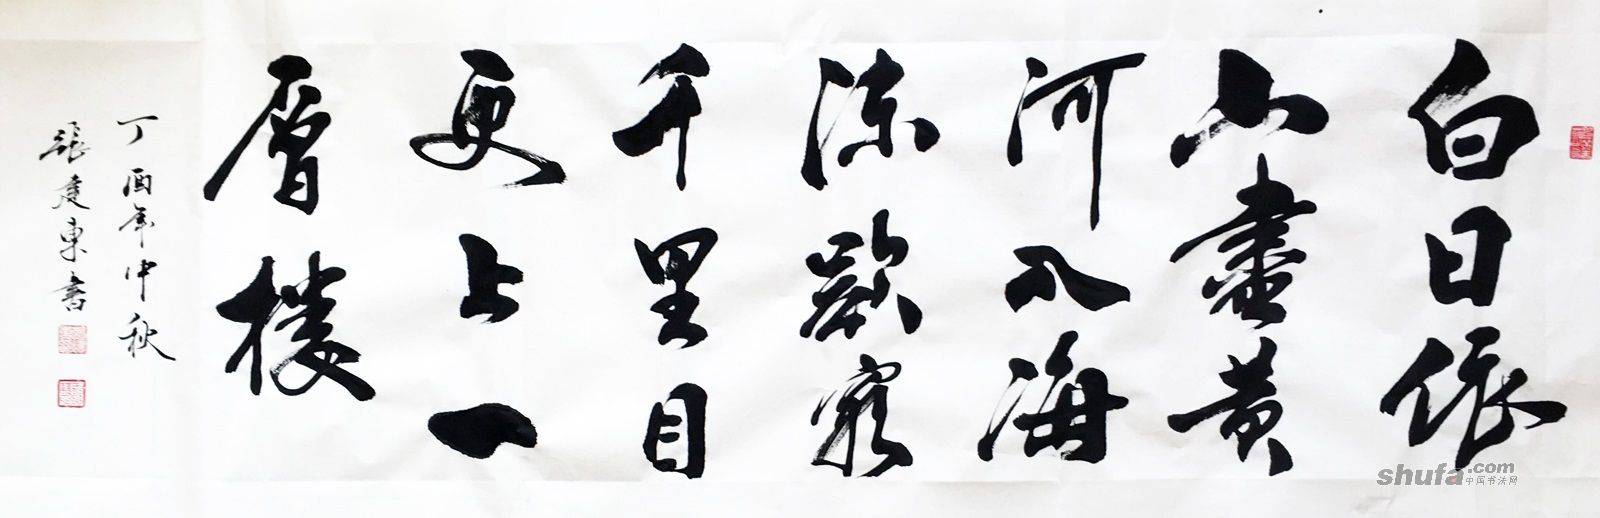 白日依
山盡黃
河入海
流欲窮
千里目
更上一
層樓
丁酉年仲秋
張建東書
shufa.com
中国书法网